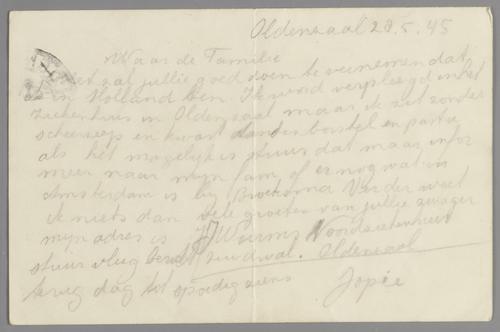 Oldenzaal 28.5.45
Waarde Familie
Het zal jullie goed doen te vernemen dat
in Holland ben. Ik word verpleegd in het
ziekenhuis in Oldenzaal maar ik zit zonder
scheerzeep en kwast tandenborstel en pasta
als het mogelijk is stuur dat maar infor
meer naar mijn fam, of er nog wat in
Amsterdam is bij Verder weet
ik niets dan vele groeten van jullie zwager
mijn adres is J Worms
stuur vlug bericht Oldenzaal
terug dag tot spoedig ziens
Jopie